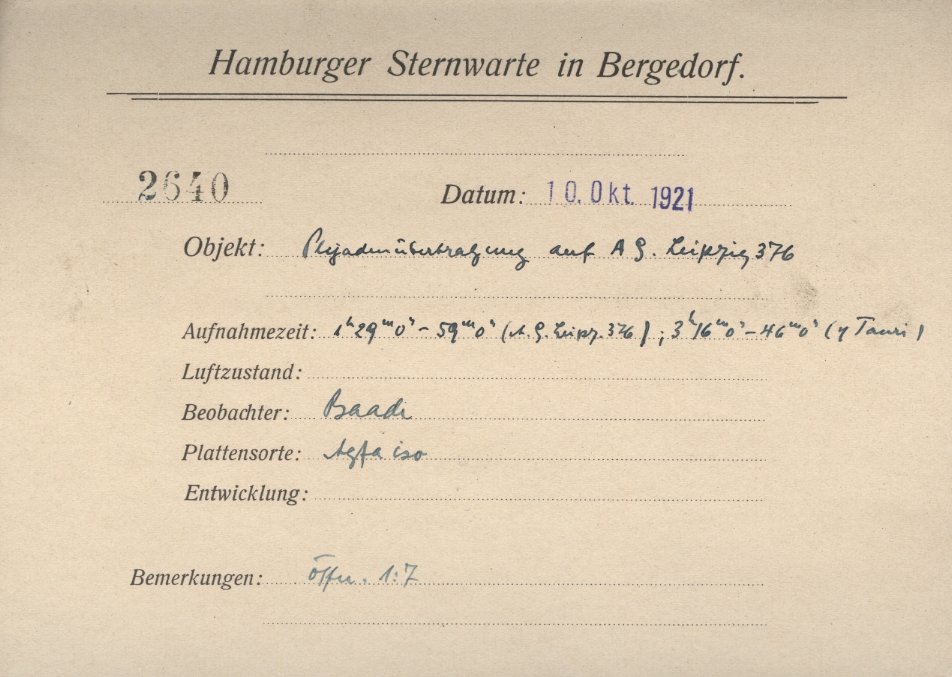 Hamburger Sternwarte in Bergedorf.
2640 Datum: 10. Okt. 1921
Objekt: Plejadenübertragung auf A G. Leipzig 376
Aufnahmezeit: 1ʰ29ᵐ0ˢ - 59ᵐ0ˢ (A. G. Leipz. 376); 3ʰ16ᵐ0ˢ - 46ᵐ0ˢ (γ Tauri)
Luftzustand:
Beobachter: Baade
Plattensorte: Agfa iso
Entwicklung:
Bemerkungen: Öffn. 1:7